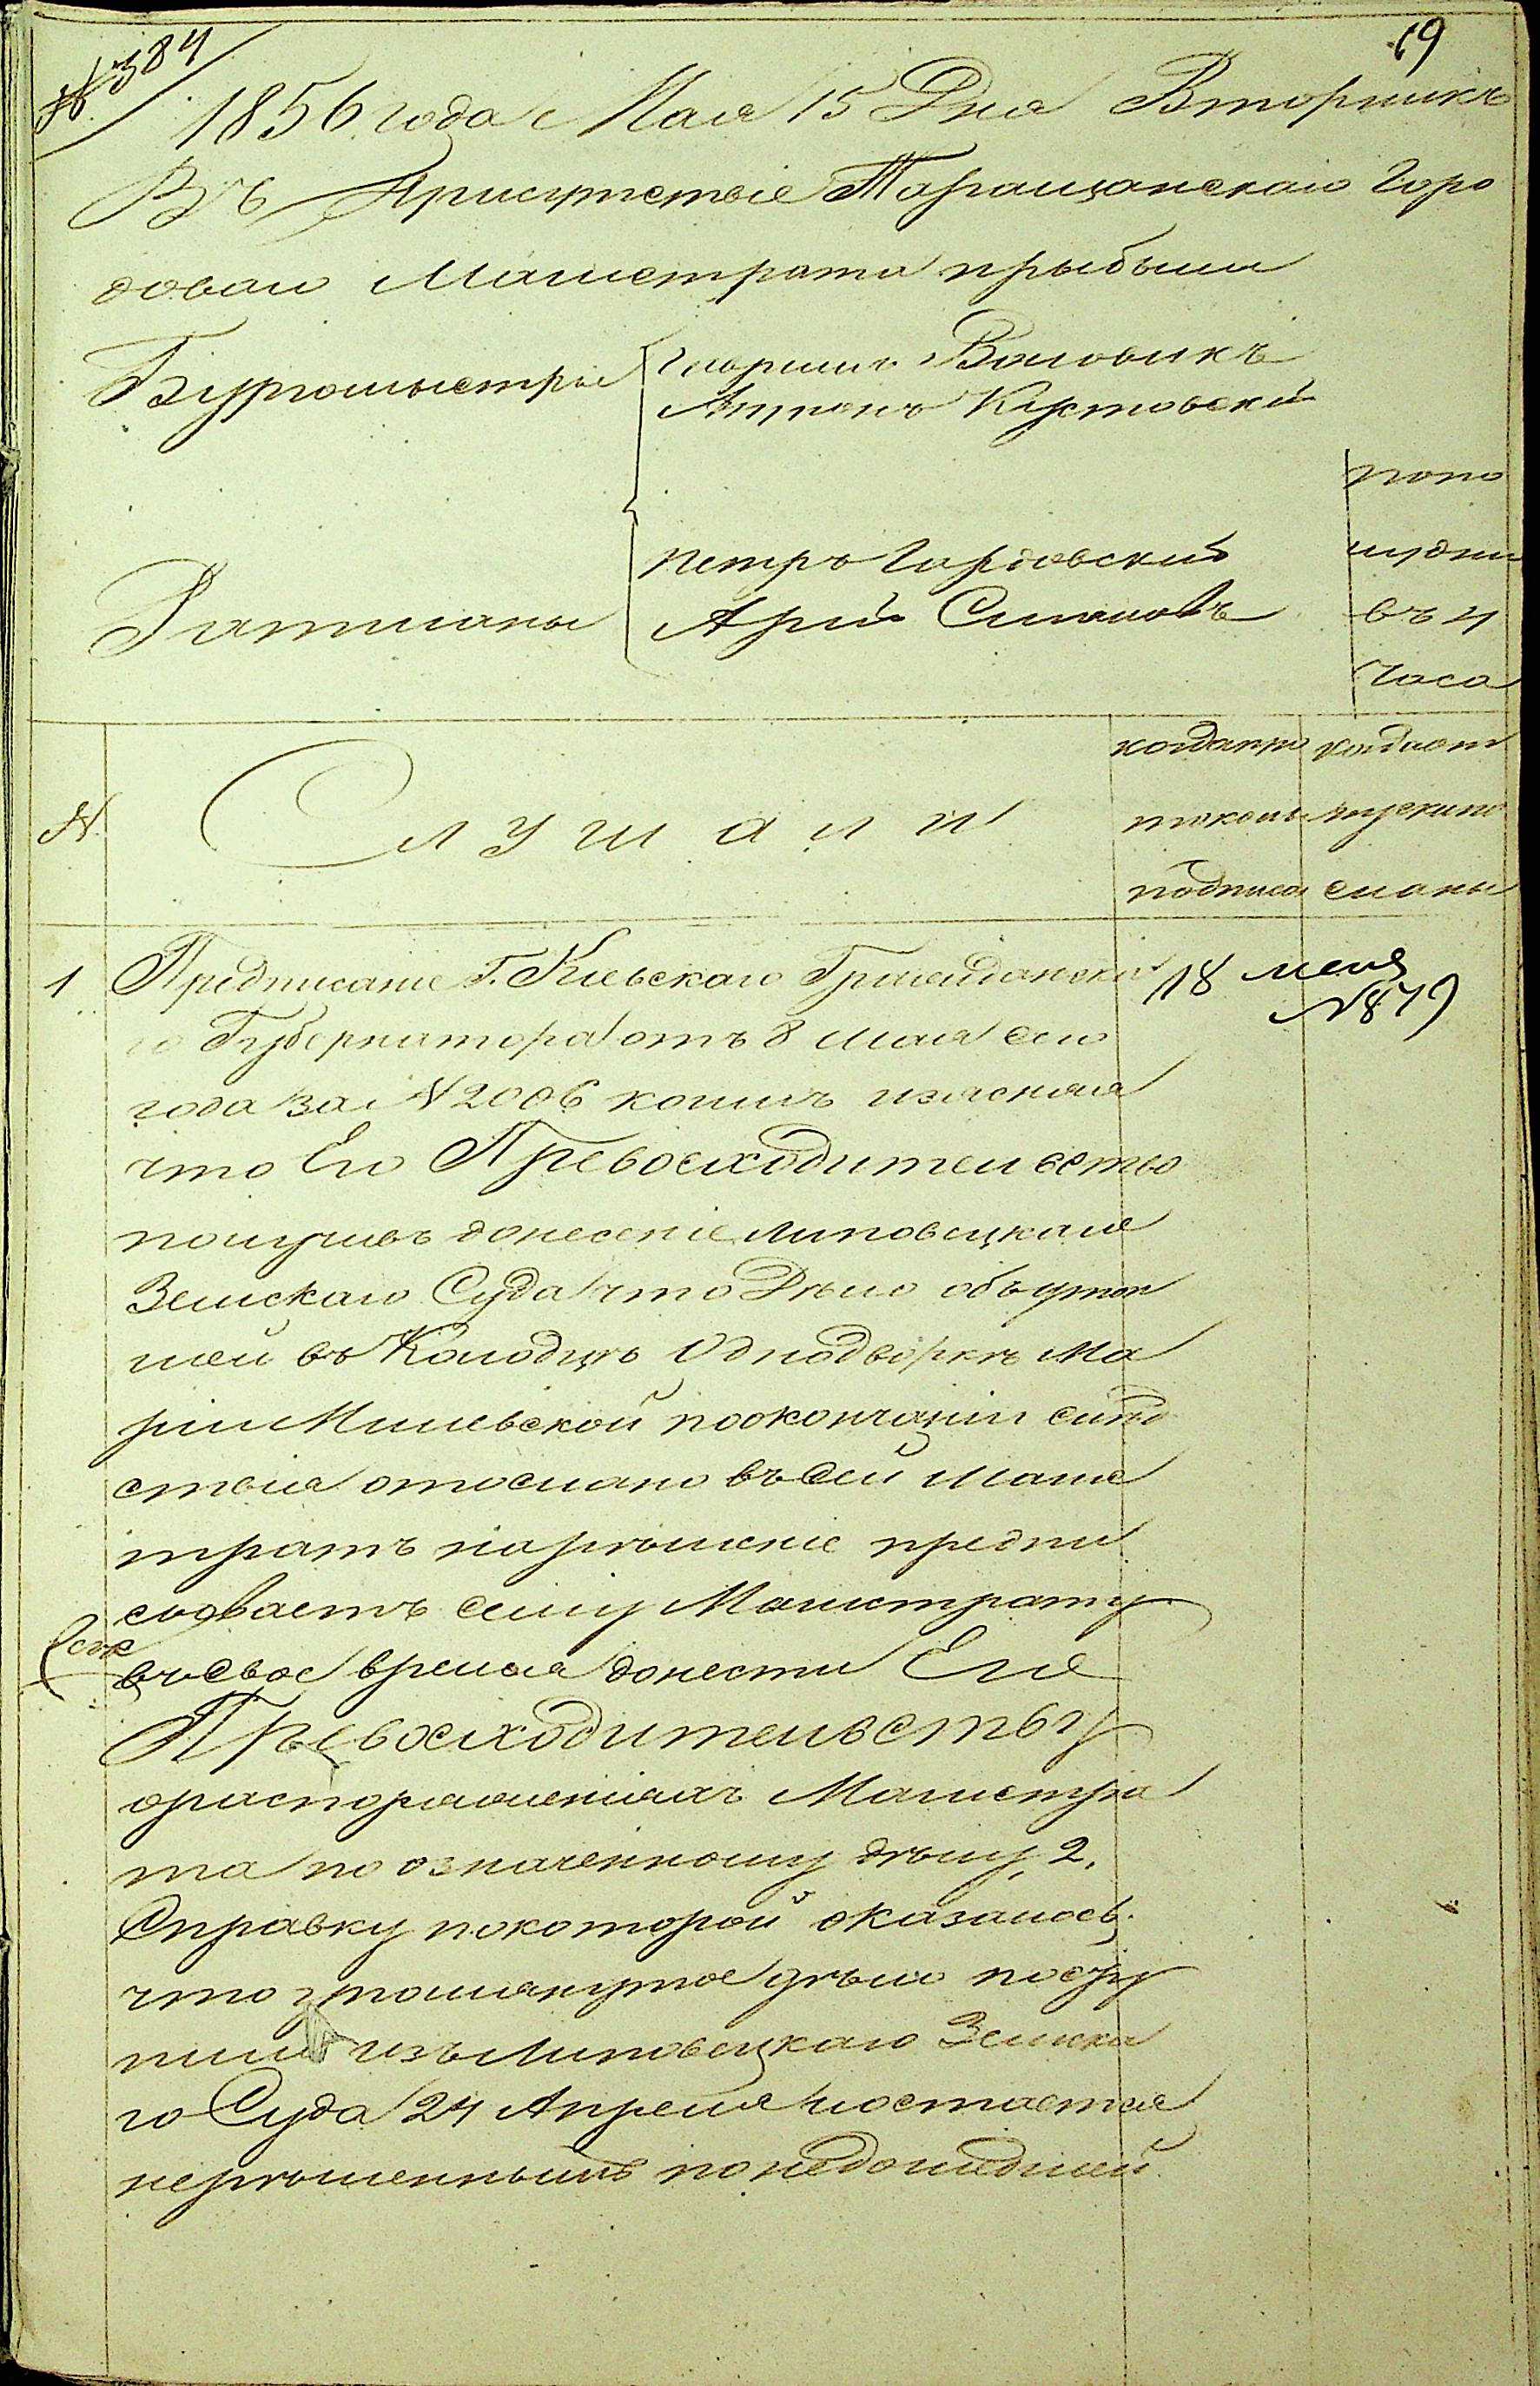 № 384
19
1856 года Мая 15 Дня Вторникъ
Въ Присутствіе Таращанскаго Горо
доваго Магистрата прыбыли
Бургомыстры Гаврыило Воловикъ
Антонъ Кустовскій
Ратманы Петръ Гарговскій
Арій Симоновъ
попо
лудни
въ 4
часа
№
Слушали
когда про
токолъ
подписа
когда от
пуски по
сланы
1 Предписаніе Г. Кіевскаго Гражданска
го Губернатора отъ 8 мая сего
года за N 2006 коимъ изясняя
что Его Превосходительство
получивъ донесеніе Липовецкаго
Земскаго Суда что Дѣло объ утоп
шей въ Колодцѣ Однодворкѣ Ма
ріи Милевской поокончаніи слѣд
ствія отослано въ Сей Магис
тратъ нарѣшеніе предпи
соваетъ сему Магистрату
въ свое время донести Его
Превосходительству
ораспоряженіяхъ Магистра
та по означенному дѣлу, 2.
Справку покоторой оказалось
что упомянутое дѣло посту
пило изъ Липовецкаго Земска
го Суда 24 Апреля иостается
нерѣшеннымъ по недошедшей
18 мая
N 879